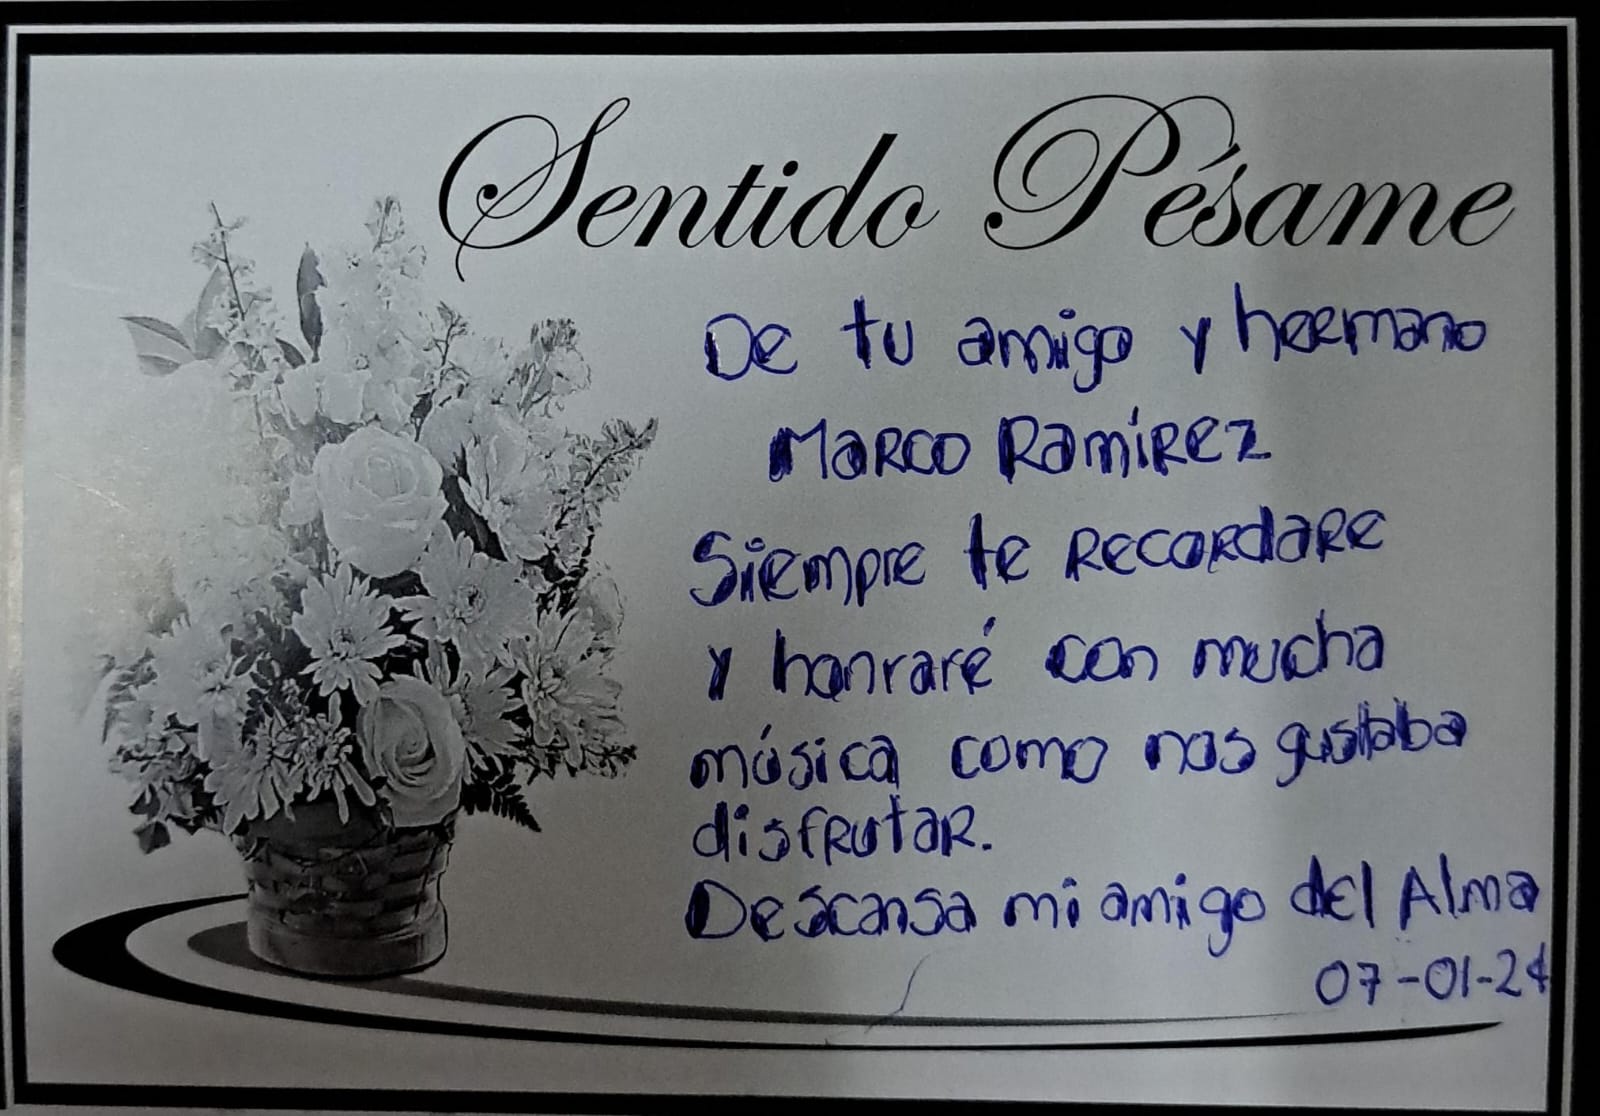 Sentido Pésame
De tu amigo y hermano
Marco Ramírez
Siempre te recordare
y honraré con mucha
música como nos gustaba
disfrutar.
Descansa mi amigo del Alma
07-01-24